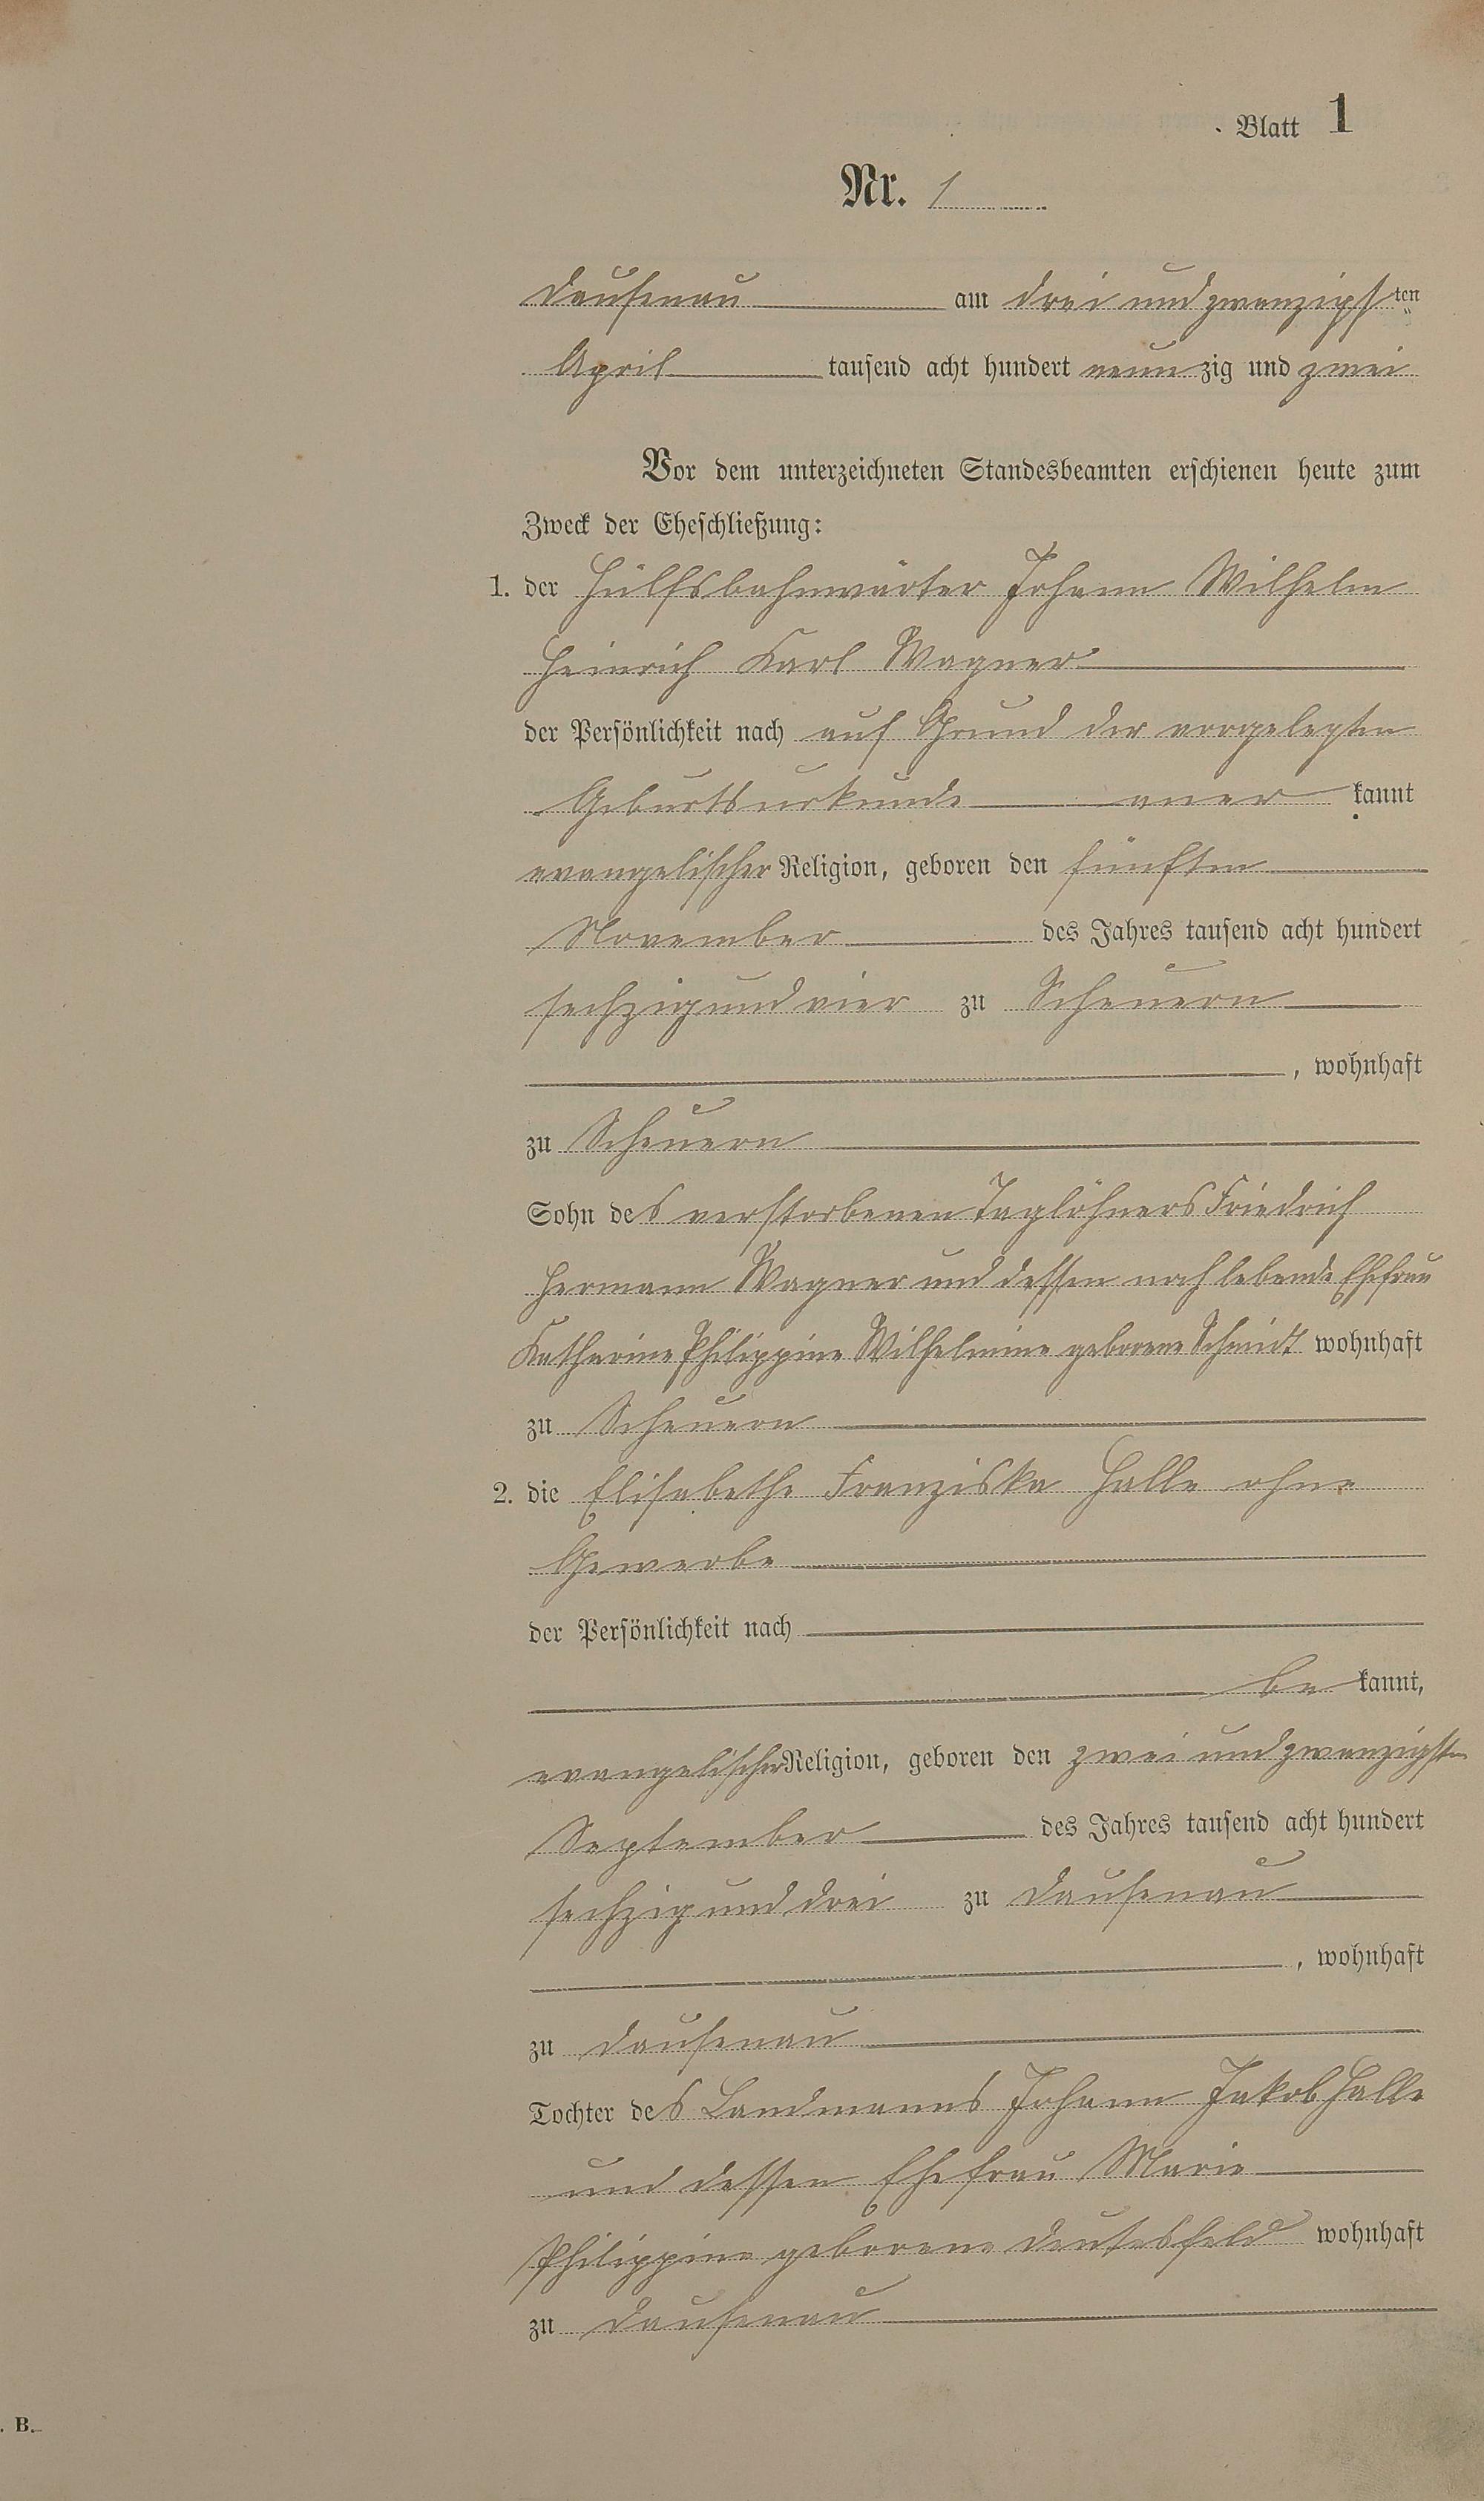 Blatt 1
Nr. 1
Dausenau am drei und zwanzigsten
April tausend acht hundert neunzig und zwei
Vor dem unterzeichneten Standesbeamten erschienen heute zum
Zweck der Eheschließung:
1. der Hülfsbahnwärter Johann Wilhelm
Heinrich Karl Wagner
der Persönlichkeit nach auf Grund der vorgelegten
Geburtsurkunde aner kannt
evangelischer Religion, geboren den fünften
November des Jahres tausend acht hundert
sechzig und vier zu Scheuern
, wohnhaft
zu Scheuern
Sohn des verstorbenen Taglöhners Friedrich
Hermann Wagner und dessen noch lebende Ehefrau
Katharine Philippine Wilhelmine geborene Schmidt wohnhaft
zu Scheuern
2. die Elisabethe Franziska Halle ohne
Gewerbe
der Persönlichkeit nach
be kannt,
evangelischer Religion, geboren den zwei und zwanzigsten
September des Jahres tausend acht hundert
sechzig und drei zu Dausenau
, wohnhaft
zu Dausenau
Tochter des Landmanns Johann Jakob Halle
und dessen Ehefrau Marie
Philippine geborene wohnhaft
zu Dausenau
. B.